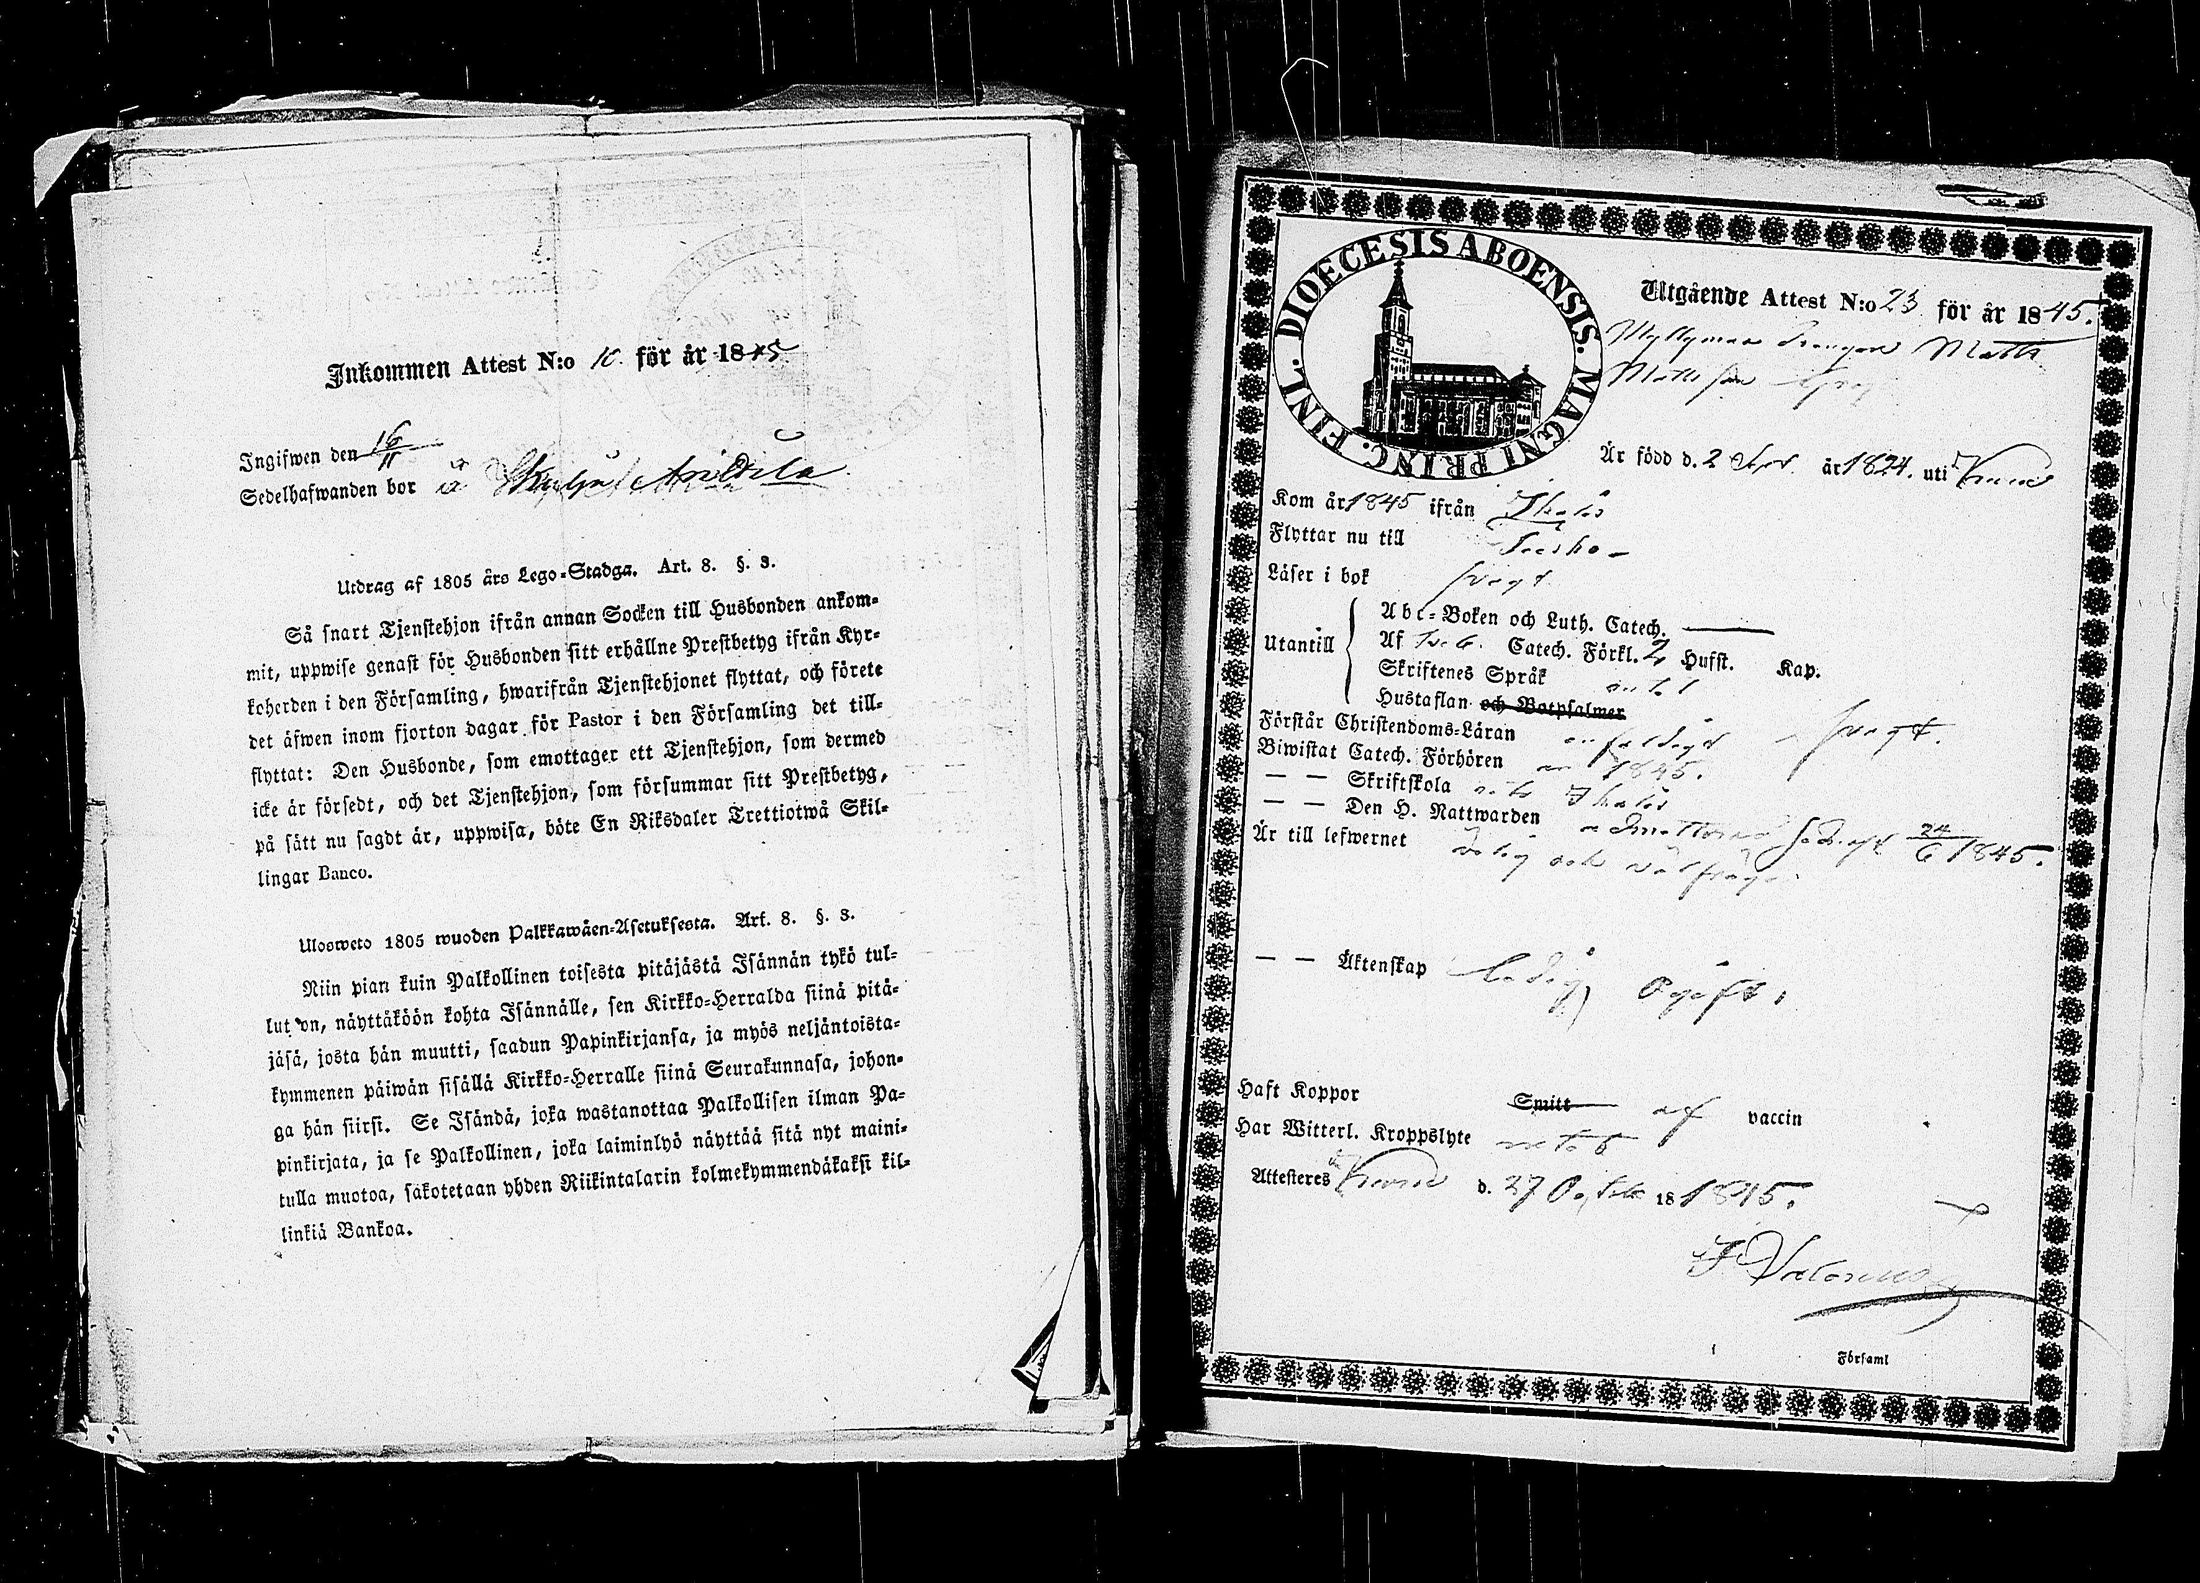 Inkommen Attest N:o 10. för år 1845
Ingifwen den 16/11
Sedelhafwanden bor
Utdrag af 1805 års Lego-Stadga. Art. 8. §. 3.
Så snart Tjenstehjon ifrån annan Socken till Husbonden ankom-
mit, uppwise genast för Husbonden sitt erhållne Prestbetyg ifrån Kyr-
koherden i den Församling, hwarifrån Tjenstehjonet flyttat, och förete
det äfwen inom fjorton dagar för Pastor i den Församling det till-
flyttat: Den Husbonde, som emottager ett Tjenstehjon, som dermed
icke är försedt, och det Tjenstehjon, som försummar sitt Prestbetyg,
på sätt nu sagdt är, uppwisa, böte En Riksdaler Trettiotwå Skil-
lingar Banco.
Ulosweto 1805 wuoden Palkkawäen-Asetuksesta. Art. 8. §. 3.
Niin pian kuin Palkollinen toisesta pitäjästä Isännän tykö tul-
lut on, näyttäköön kohta Isännälle, sen Kirkko-Herralda siinä pitä-
jäsä, josta hän muutti, saadun Papinkirjansa, ja myös neljäntoista-
kymmenen päiwän sisällä Kirkko-Herralle siinä Seurakunnasa, johon-
ga hän siirsi. Se Isändä, joka wastanottaa Palkollisen ilman Pa-
pinkirjata, ja se Palkollinen, joka laiminlyö näyttää sitä nyt maini-
tulla muotoa, sakotetaan yhden Riikintalarin kolmekymmendäkaksi kil-
linkiä Bankoa.
DIOECESIS ABOENSIS. MAGNI PRINC. FINL.
Utgående Attest N:o 23 för år 1845.
Drengen Matts
Matts son
Är född d. 2 år 1824. uti
Kom år 1845 ifrån Ikalis
Flyttar nu till
Läser i bok svagt
Utantill
Abc-Boken och Luth. Catech.
Af Catech. Förkl. 2 Hufst. Kap.
Skriftenes Språk
Hustaflan och Botpsalmer
Förstår Christendoms-Läran svagt.
Biwistat Catech. Förhören 1845.
— — Skriftskola Ikalis
— — Den H. Nattwarden 24/6 1845.
Är till lefwernet och
— — Äktenskap ledig, ogift.
Haft Koppor Smitt af vaccin
Har Witterl. Kroppslyte
Attesteres d. 27 18 1845.
Församl